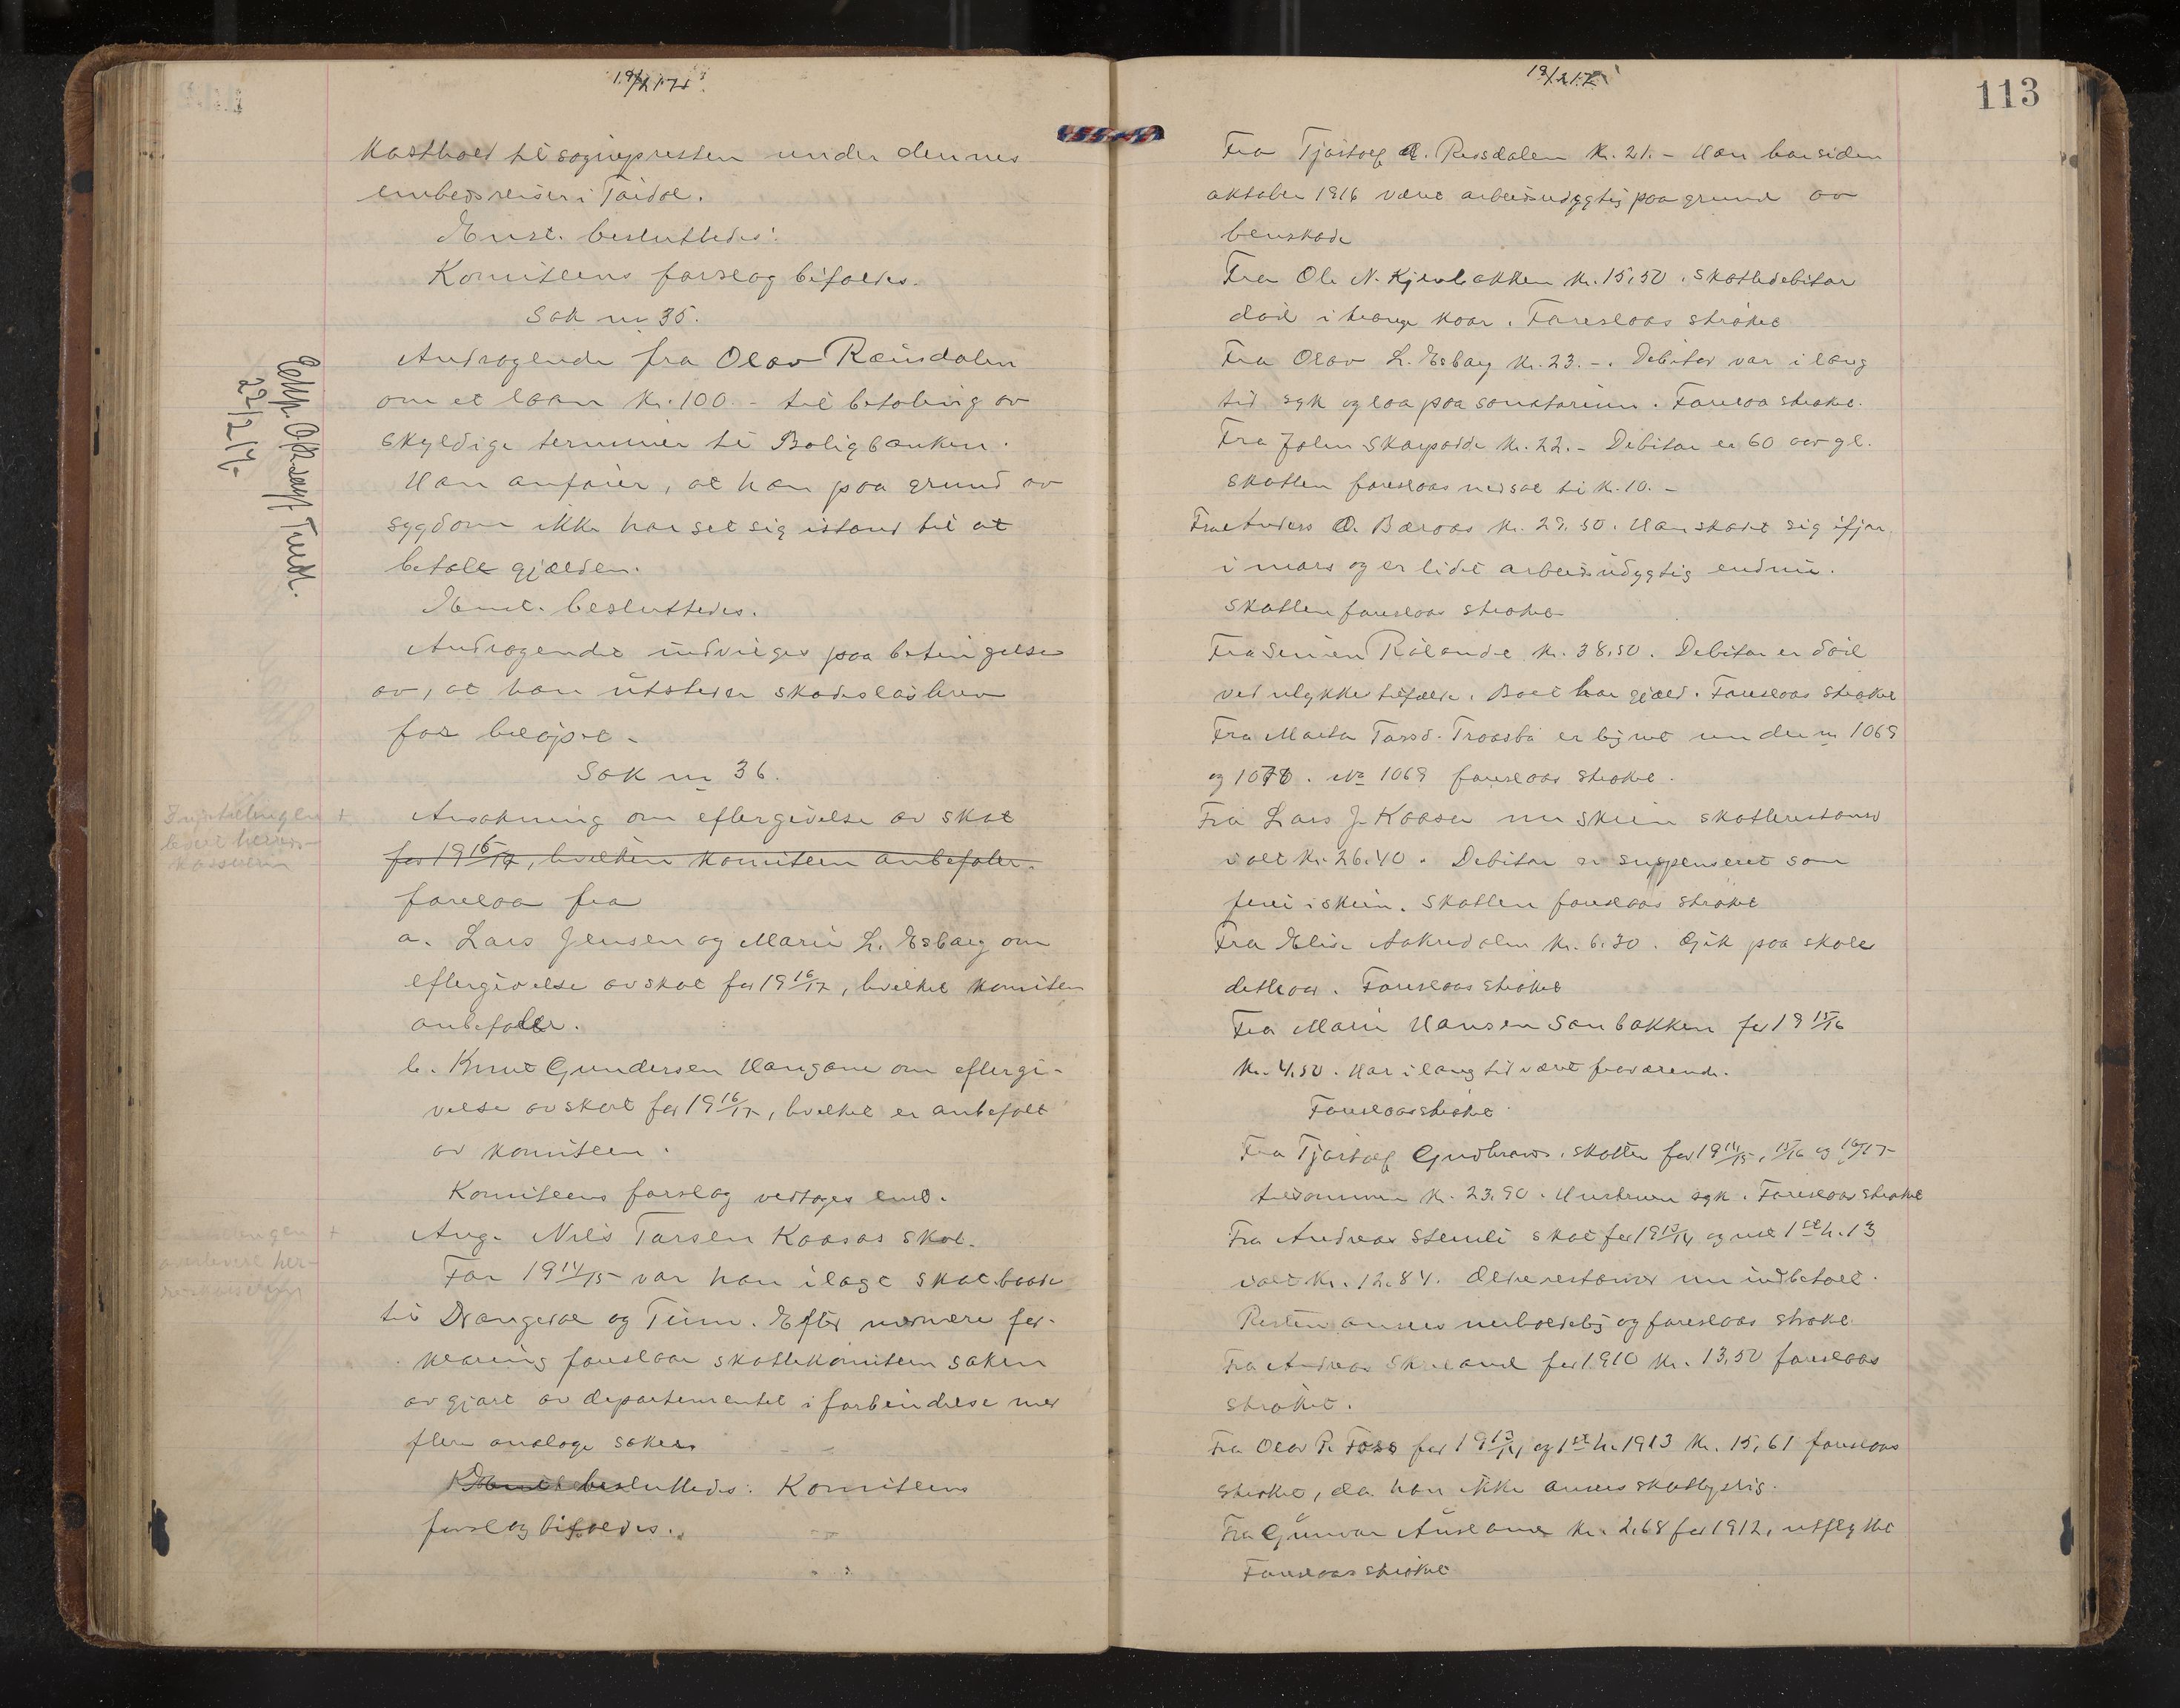 19/2 17.
kosthold til sognepresten under dennes
embedsreiser i Tørdal.
Enst. besluttedes:
Komiteens forslag bifaldes.
Sak nr 35.
Andragende fra Olav Reinsdalen
om et laan kr. 100.- til betaling av
skyldige terminer til Boligbanken.
Han anfører, at han paa grund av
sygdom ikke har set sig istand til at
betale gjælden.
Enst. besluttedes.
Andragendet indvilges paa betingelse
av, at han utsteder skadesløsbrev
for beløpet.
Eksp. Opsagt Tinst.
22/2 17.
Sak nr 36.
Ansøkning om eftergivelse av skat
for 19 16/17, hvilken komiteen anbefaler.
foreslaa fra
a. Lars Jensen og Marie L. Esborg om
eftergivelse av skat for 19 16/17, hvilket komiteen
anbefaler.
b. Knut Gundersen Haugane om eftergi-
velse av skat for 19 16/17, hvilket er anbefalt
av komiteen.
Komiteens forslag vedtages enst.
Ang. Nils Tarsen Kaasas skat.
For 19 14/15 var han ilagt skat baade
til Drangedal og Tinn. Efter nærmere for-
klaring foreslaar skattekomiteen saken
avgjort av departementet i forbindelse med
flere analoge saker.
Enst. besluttedes: Komiteens
forslag bifaldes.
19/2 17.
113
Fra Tjøstolf A. Rossdalen kr. 21.- Han har siden
oktober 1916 været arbeidsudygtig paa grund av
benskade
Fra Ole N. Kjerbakken kr. 15,50. Skattedebitor
død i trange kaar. Foreslaas strøket
Fra Olav L. Esborg kr. 23.-. Debitor var i lang
tid syk og laa paa sanatorium. Foreslaa strøket.
Fra John Skarpodde kr. 22.- Debitor er 60 aar gl.
Skatten foreslaas nedsat til kr. 10.-
Fra Anders O. Bæraas kr. 29.50. Han skadet sig ifjor
i mars og er lidet arbeidsudygtig endnu.
Skatten foreslaas strøket
Fra Simen Røland kr. 38,50. Debitor er død
ved ulykkestilfælde. Boet har gjæld. Foreslaas strøket
Fra Marta Torsd. Traasbø er lignet under nr 1069
og 1070. No 1069 foreslaas strøket.
Fra Lars J. Kaasa nu Skien skatterestance
ialt kr. 26.40. Debitor er suppenseret som
i Skien. Skatten foreslaas strøket
Fra Elise Aakredalen kr. 6.30. Gik paa skole
dette aar. Foreslaas strøket
Fra Marie Hansen Sanbakken for 19 15/16
kr. 4.50. Har i lang tid været fraværende.
Foreslaas strøket
Fra Tjøstolf Gudbrands. skatter for 19 14/15, 15/16 og 16/17
tilsammen kr. 23.90. Hustruen syk. Foreslaas strøket
Fra Andreas Stemli skat for 19 13/14 og 1ste h. 13
ialt kr. 12.84. restancer nu indbetalt.
Resten ansees uerholdelig og foreslaas strøket
Fra Andreas for 1910 kr. 13,50 foreslaas
strøket.
Fra Olav P. Foss for 19 13/14 og 1ste h. 1913 kr. 15,61 foreslaas
strøket, da han ikke ansees skattepligtig.
Fra Gunvor Ausland kr. 2,68 for 1912, utflyttet
Foreslaas strøket